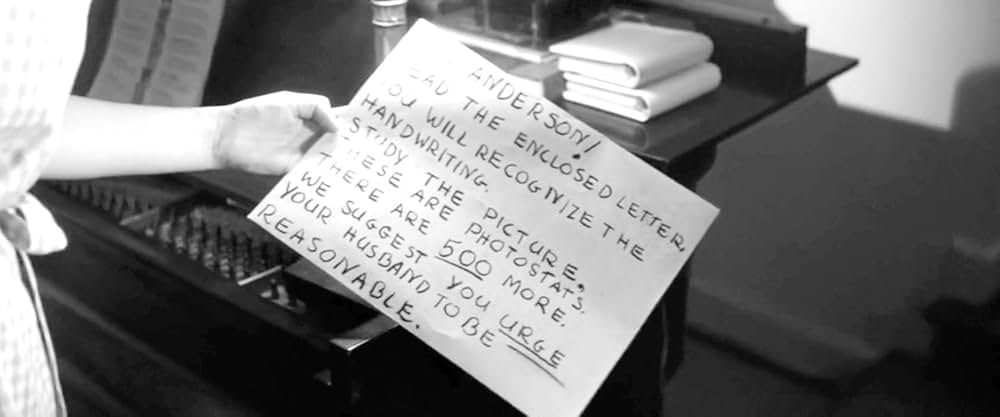 ANDERSON!
READ THE ENCLOSED LETTER,
YOU WILL RECOGNIZE THE
HANDWRITING.
STUDY THE PICTURE.
THESE ARE PHOTOSTATS.
THERE ARE 500 MORE.
WE SUGGEST YOU URGE
YOUR HUSBAND TO BE
REASONABLE.